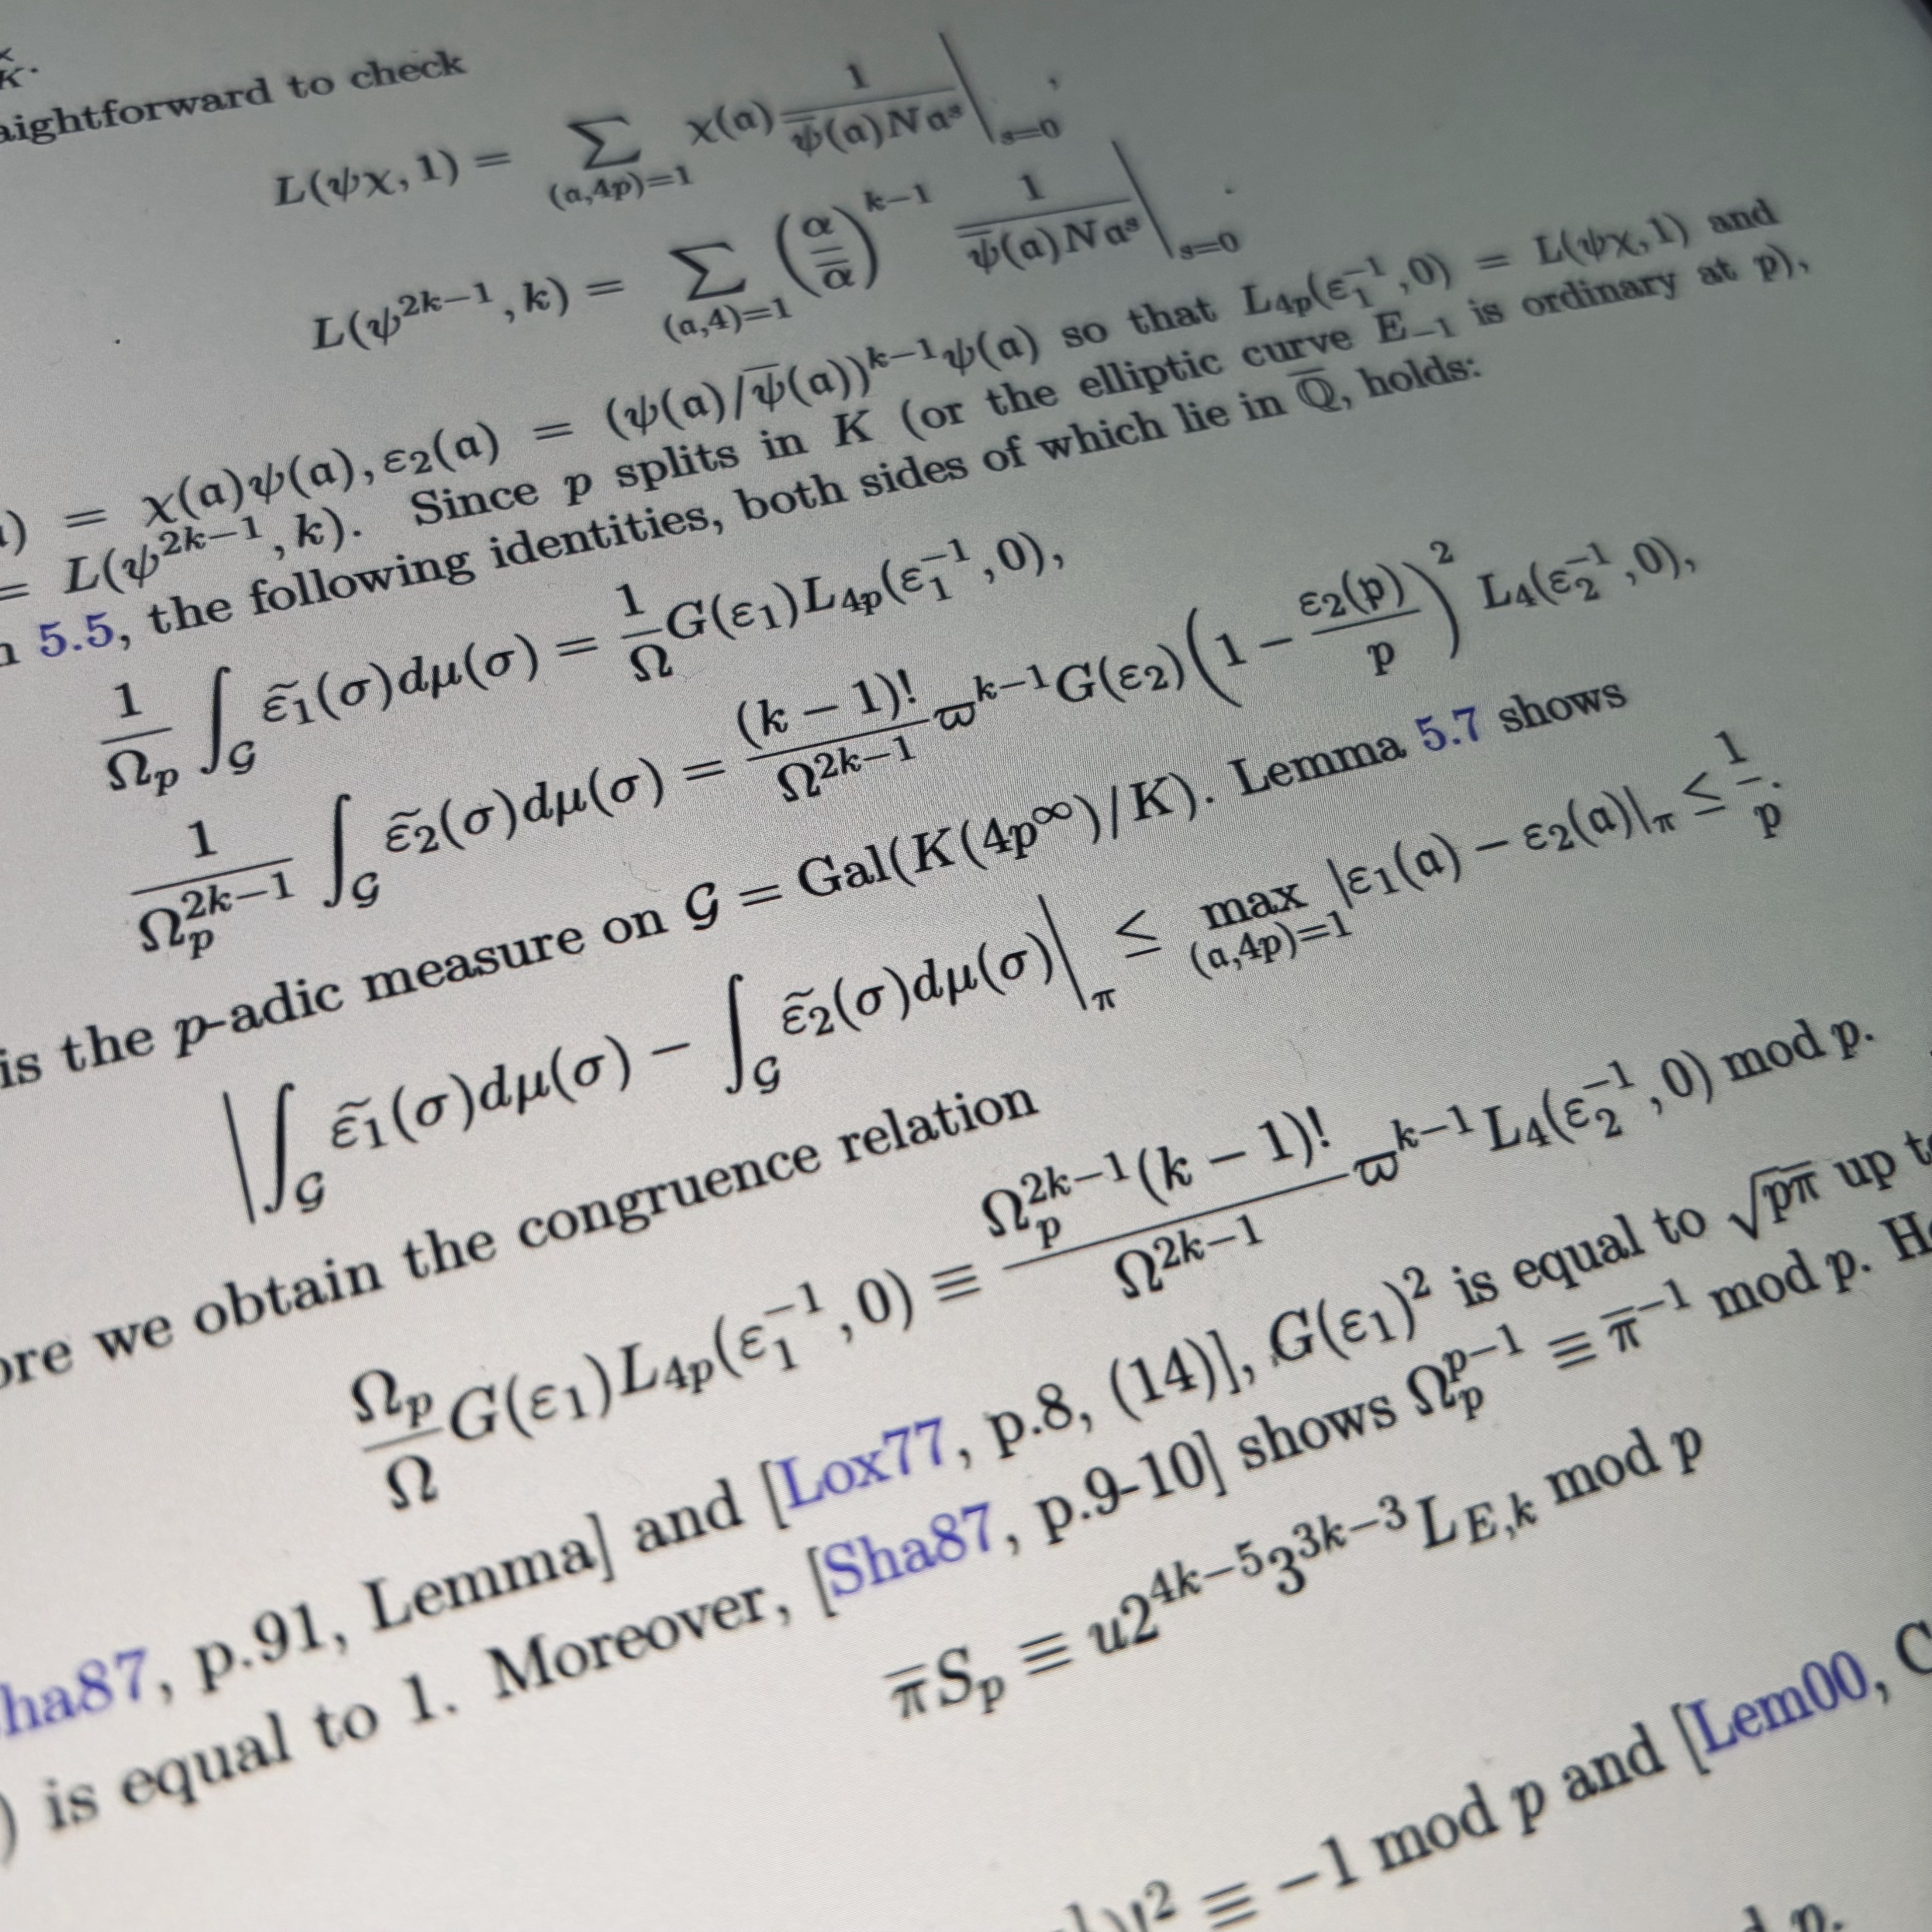 K.
aightforward to check
L(ψχ, 1) = ∑_{(𝔞,4p)=1} χ(𝔞) 1/(ψ̅(𝔞)N𝔞^s) |_{s=0} ,
L(ψ^{2k−1}, k) = ∑_{(𝔞,4)=1} (α/α̅)^{k−1} 1/(ψ̅(𝔞)N𝔞^s) |_{s=0} .
) = χ(𝔞)ψ(𝔞), ε₂(𝔞) = (ψ(𝔞)/ψ̅(𝔞))^{k−1}ψ(𝔞) so that L_{4p}(ε₁^{−1}, 0) = L(ψχ, 1) and
= L(ψ^{2k−1}, k). Since p splits in K (or the elliptic curve E_{−1} is ordinary at p),
5.5, the following identities, both sides of which lie in Q̅, holds:
1/Ω_p ∫_𝒢 ε̃₁(σ)dμ(σ) = 1/Ω G(ε₁)L_{4p}(ε₁^{−1}, 0),
1/Ω_p^{2k−1} ∫_𝒢 ε̃₂(σ)dμ(σ) = (k − 1)!/Ω^{2k−1} ϖ^{k−1}G(ε₂)(1 − ε₂(𝔭)/p)² L₄(ε₂^{−1}, 0),
is the p-adic measure on 𝒢 = Gal(K(4p^∞)/K). Lemma 5.7 shows
|∫_𝒢 ε̃₁(σ)dμ(σ) − ∫_𝒢 ε̃₂(σ)dμ(σ)|_π ≤ max_{(𝔞,4p)=1} |ε₁(𝔞) − ε₂(𝔞)|_π ≤ 1/p.
ore we obtain the congruence relation
Ω_p/Ω G(ε₁)L_{4p}(ε₁^{−1}, 0) ≡ Ω_p^{2k−1}(k − 1)!/Ω^{2k−1} ϖ^{k−1}L₄(ε₂^{−1}, 0) mod 𝔭.
ha87, p.91, Lemma] and [Lox77, p.8, (14)], G(ε₁)² is equal to √pπ̅ up t
) is equal to 1. Moreover, [Sha87, p.9-10] shows Ω_p^{p−1} ≡ π̅^{−1} mod 𝔭. H
π̅S_p ≡ u2^{4k−5}3^{3k−3}L_{E,k} mod 𝔭
)!² ≡ −1 mod p and [Lem00, C
p.